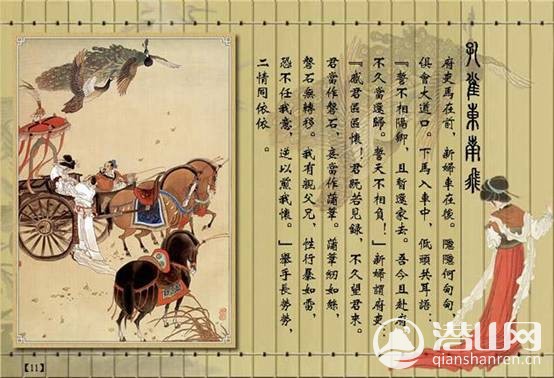 孔雀東南飛
府吏馬在前，新婦車在後。隱隱何甸甸，
俱會大道口。下馬入車中，低頭共耳語：
『誓不相隔卿，且暫還家去。吾今且赴府，
不久當還歸。誓天不相負！』新婦謂府吏：
『感君區區懷！君既若見錄，不久望君來。
君當作磐石，妾當作蒲葦。蒲葦紉如絲，
磐石無轉移。我有親父兄，性行暴如雷，
恐不任我意，逆以煎我懷。』舉手長勞勞，
二情同依依。
【11】
潜山网
qianshanren.cn